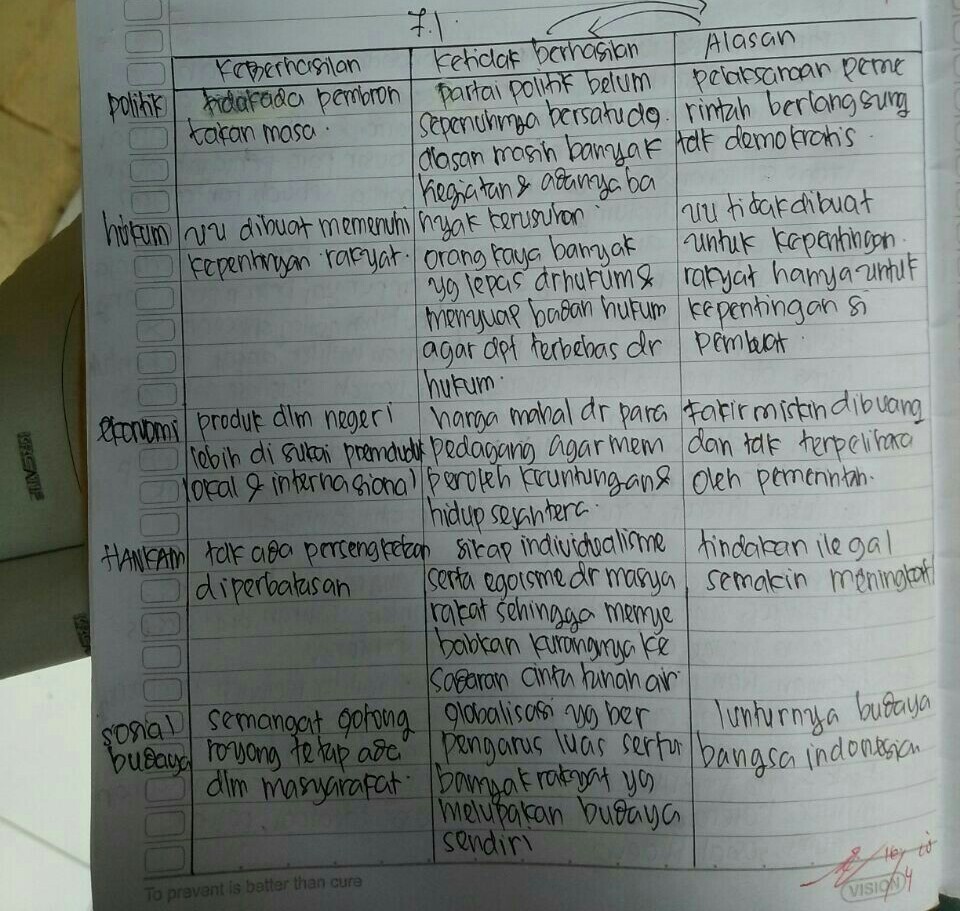 7.1
Keberhasilan
Ketidak berhasilan
Alasan
politik
tidak ada pembron
takan masa.
partai politik belum
sepenuhnya bersatu dg.
alasan masih banyak
kegiatan & adanya ba
nyak kerusuhan
pelaksanaan peme
rintah berlangsung
tdk demokratis.
hukum
uu dibuat memenuhi
kepentingan rakyat.
orang kaya banyak
yg lepas dr hukum &
menyuap badan hukum
agar dpt terbebas dr
hukum.
uu tidak dibuat
untuk kepentingan.
rakyat hanya untuk
kepentingan si
pembuat.
ekonomi
produk dlm negeri
lebih di sukai premduduk
lokal & internasional
harga mahal dr para
pedagang agar mem
peroleh keuntungan &
hidup sejahtera.
fakir miskin dibuang
dan tdk terpelihara
oleh pemerintah.
HANKAM
tdk ada persengketaan
diperbatasan
sikap individualisme
serta egoisme dr masya
rakat sehingga menye
babkan kurangnya ke
sadaran cinta tanah air
tindakan ilegal
semakin meningkat
sosial
budaya
semangat gotong
royong tetap ada
dlm masyarakat.
globalisasi yg ber
pengarus luas serta
banyak rakyat yg
melupakan budaya
sendiri
lunturnya budaya
bangsa indonesia
To prevent is better than cure
VISION